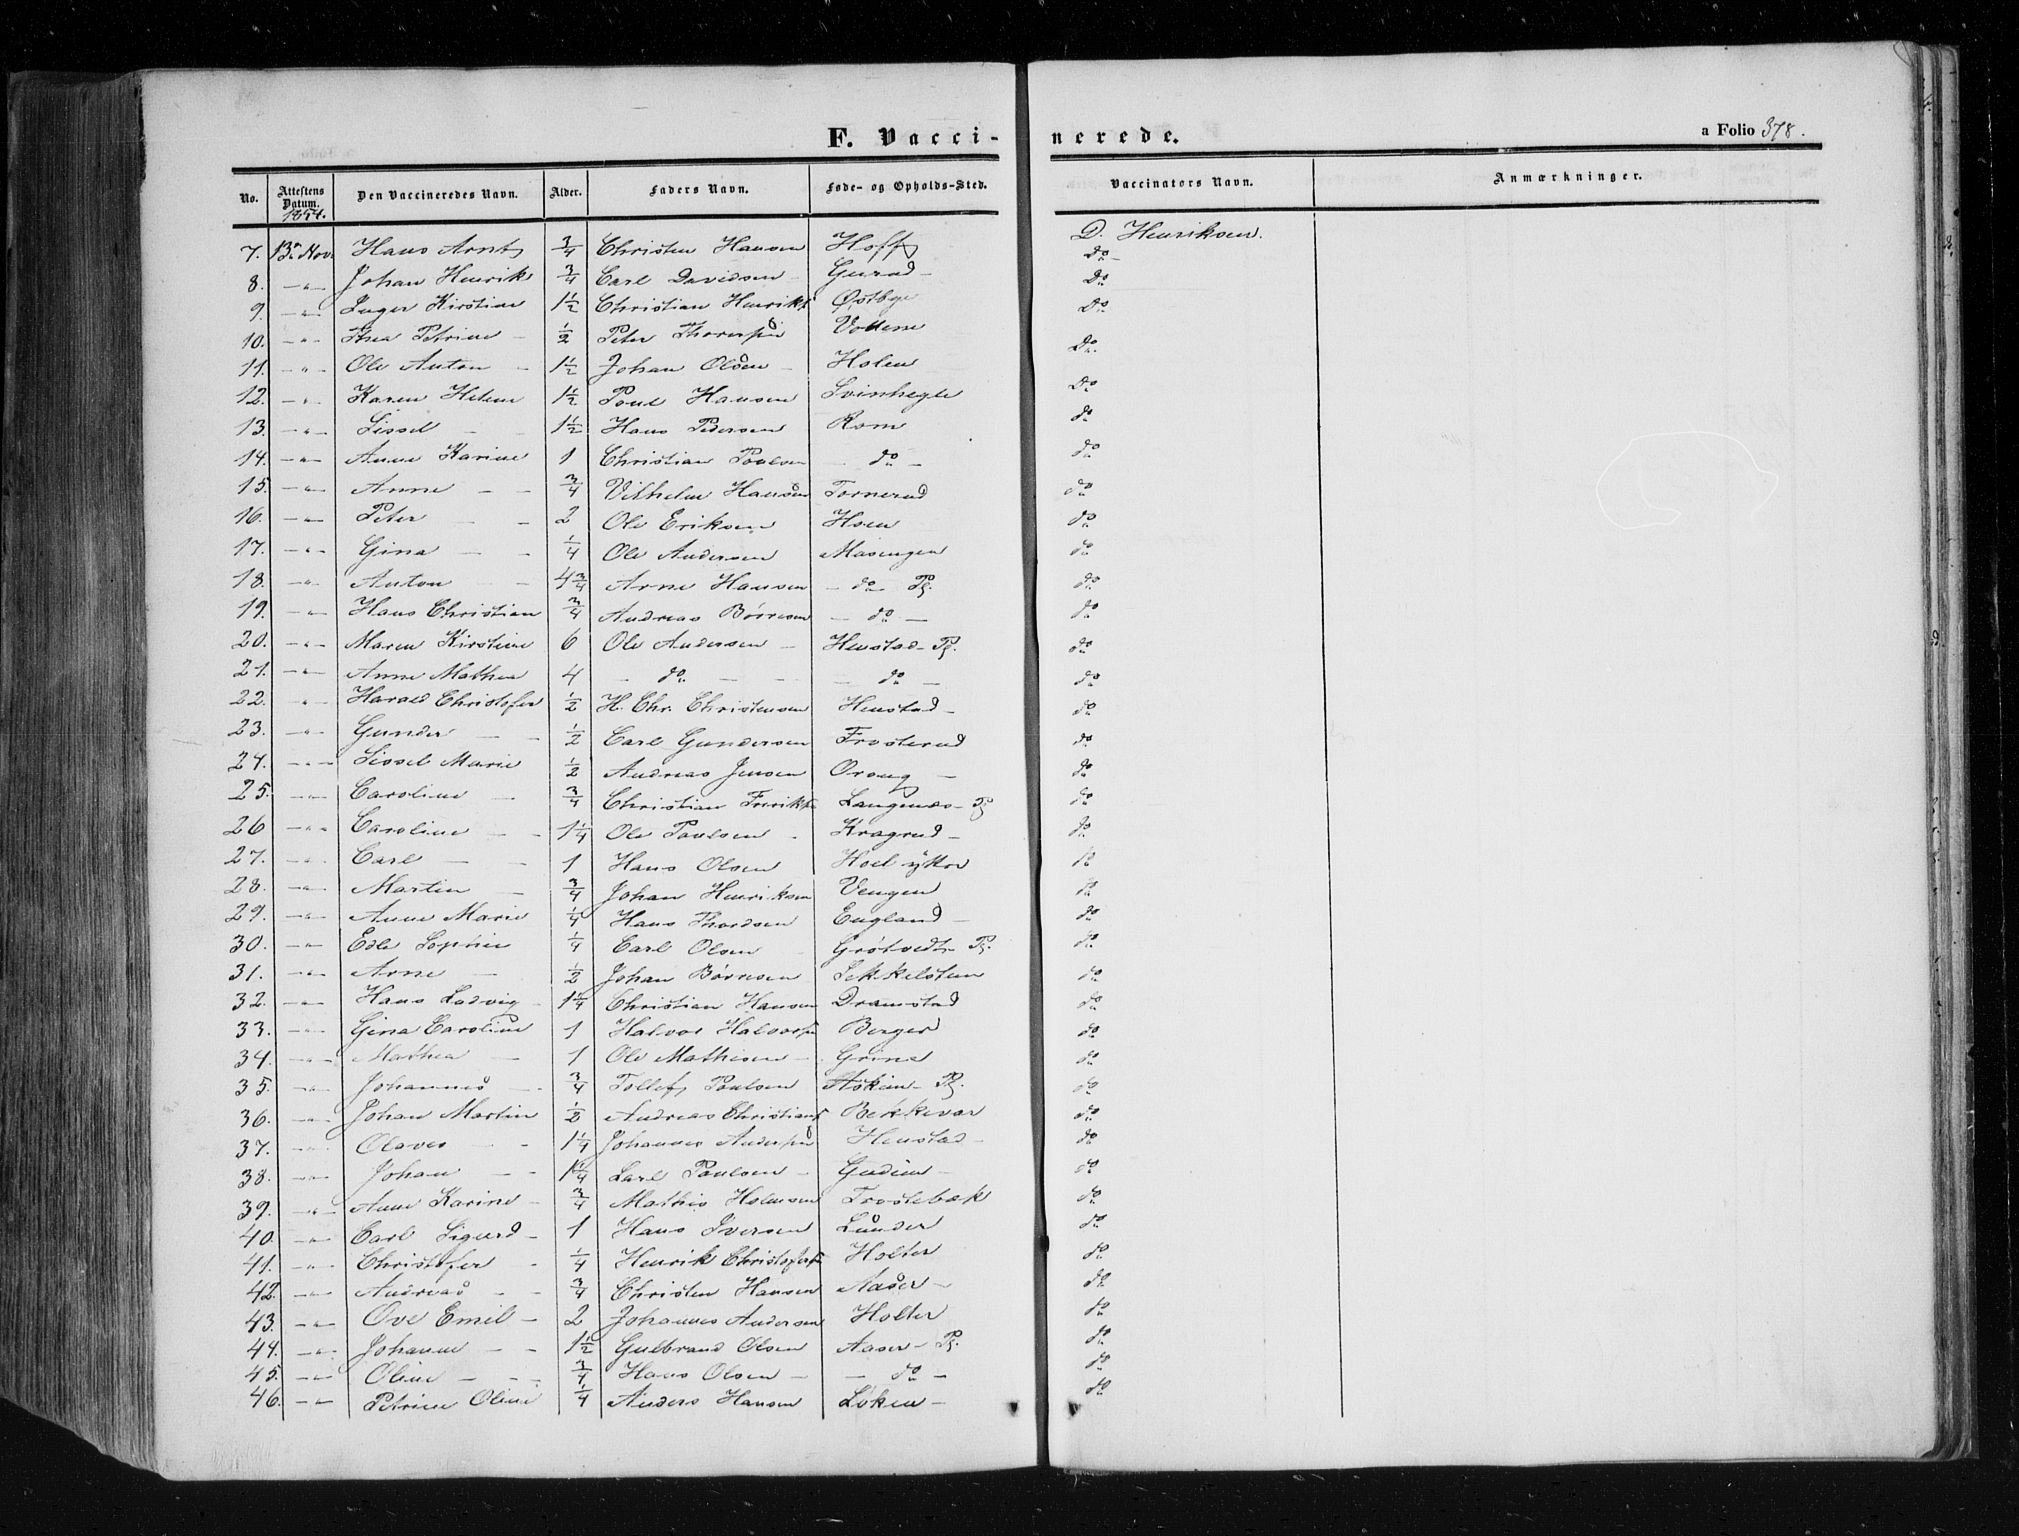 F. Vacci-nerede.
a Folio 378.
No. Attestens Datum. 1854. Den Vaccineredes Navn. Alder. Faders Navn. Føde- og Opholds-Sted. Vaccinators Navn. Anmærkninger.
7. 13 Nov. Hans Arnt 3/4 Christen Hansen Hoff D. Henriksen.
8. -"- Johan Henrik 3/4 Carl Davidsen - Gurud - Do -
9. -"- Inger Kirstine 1 1/2 Christian Henriks. Østbye Do
10. -"- Thea Petrine - 1/2 Peter Thorersen Vollene Do
11. -"- Ole Anton - 1 1/2 Johan Olsen - Holen Do.
12. -"- Karen Helene 1 1/2 Poul Hansen Svinhegle Do
13. -"- Sissel - - 1 1/2 Hans Pedersen Rom do
14. -"- Anne Karine 1 Christian Poulsen - do - do
15. -"- Anne - - 3/4 Vilhelm Hansen Tornerud do
16. -"- Peter - - 2 Ole Eriksen Hoen do
17. -"- Gina - - 1/4 Ole Andersen Masengen do
18. -"- Anton - - 4 3/4 Arne Hansen - do - Pl. do
19. -"- Hans Christian 3/4 Andreas Børresen - do - do
20. -"- Maren Kirstine 6 Ole Andersen - Henstad - Pl. do
21. -"- Anne Mathea 4 - do - - - do - do
22. -"- Harald Christofer 1/2 H. Chr. Christensen Henstad - do
23. -"- Gunder - - 1/2 Carl Gundersen Frosterud do
24. -"- Sissel Marie 1/2 Andreas Jensen Oroug - do
25. -"- Caroline - 3/4 Christian Fredriks. Langenæs - Pl do
26 -"- Caroline - - 1 1/4 Ole Poulsen - Kragrud - do
27. -"- Carl - - 1 Hans Olsen Hoel ÿttre do
28. -"- Martin - 3/4 Johan Henriksen Vengen do
29. -"- Anne Marie 1/4 Hans Thordsen England - do
30. -"- Edle Sophie 1/4 Carl Olsen - Grøtvedt - Pl. do
31. -"- Arne - 1/2 Johan Børresen Sekkelsten do
32. -"- Hans Ludvig - 1 1/4 Christian Hansen Dramstad do
33. -"- Gina Caroline 1 Halvor Halvors. Berger do
34. -"- Mathea - 1 Ole Mathisen - Grina do
35. -"- Johannes - 3/4 Tollef Poulsen Askim - Pl. do
36. -"- Johan Martin 1/2 Andreas Christians. Bekkevar do
37. -"- Olaves - - 1 1/4 Johannes Andersen Henstad - do
38. -"- Johan - - 1 1/4 Carl Poulsen - Gudim - do
39. -"- Anne Karine - 3/4 Mathis Holmsen Trostebæk do
40. -"- Carl Sigurd - 1 Hans Iversen Lunder do
41. -"- Christofer - 1/4 Henrik Christofers. Holter do
42. -"- Andreas - - 3/4 Christen Hansen Aaser - do
43. -"- Ove Emil - 2 Johannes Andersen Holter do
44. -"- Johanne - - 1 1/2 Gulbrand Olsen Aaser - Pl. do
45. -"- Oline - - - 3/4 Hans Olsen - - do - do
46. -"- Petrine Oline 1/4 Anders Hansen Løken - do